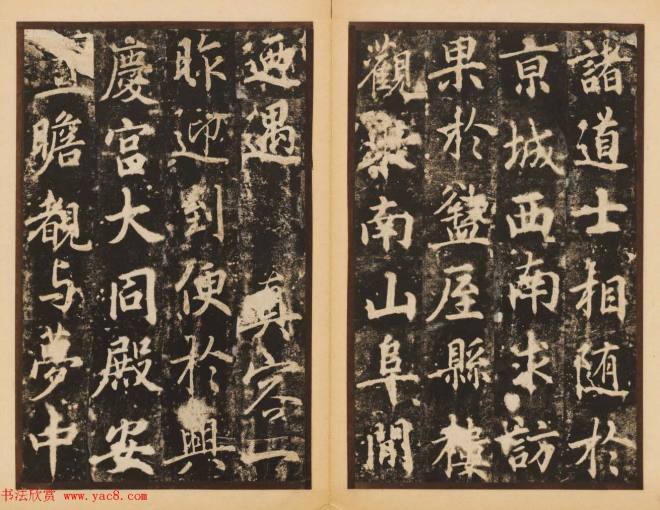 諸道士相随於
京城西南求訪
果於盩厔縣樓
觀東南山阜間
迺遇真容一
昨迎到便於興
慶宮大同殿安
瞻覩与夢中
书法欣赏 www.yac8.com